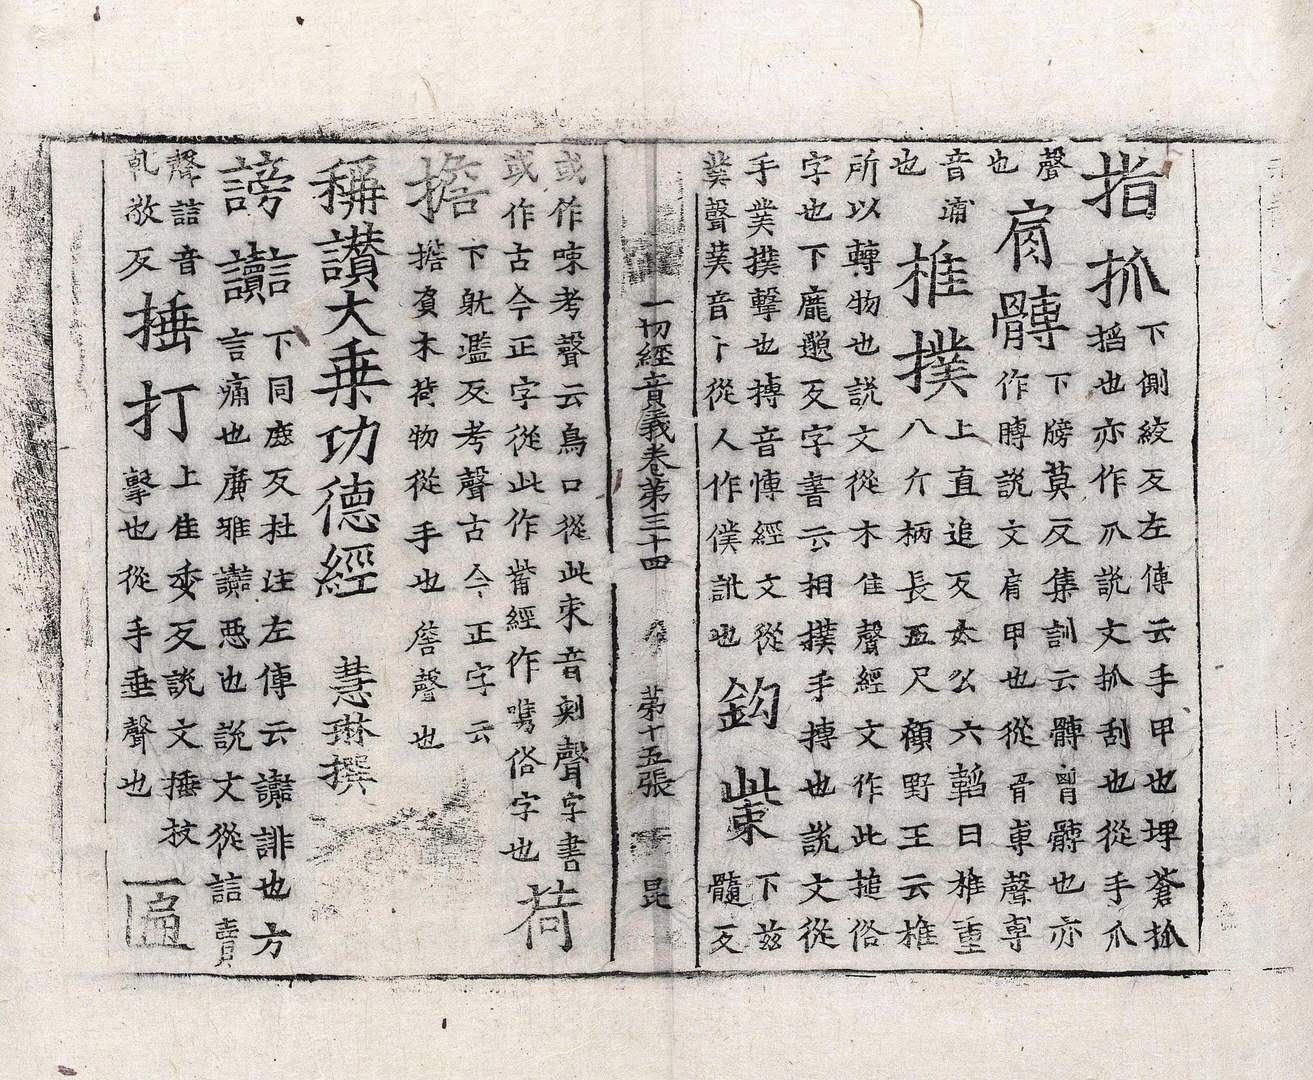 指抓下側絞反左傳云手甲也埤蒼抓
搯也亦作爪說文抓刮也從手爪
聲
也
肩髆下牓莫反集訓云髆髆也亦
作膊說文肩甲也從骨專聲專
音浦
也
椎撲上直追反太公六韜曰椎重
八斤柄長五尺顧野王云椎
所以轉物也說文從木隹聲經文作此搥俗
字也下龐邈反字書云相撲手搏也說文從
手菐撲擊也搏音博經文從
菐聲菐音卜從人作僕訛也
鈎㭰下茲
髓反
一切經音義卷第三十四 第十五張 昆
或作㖢考聲云鳥口從此朿音刾聲字書
或作古今正字從此作觜經作嘴俗字也
荷
擔下躭濫反考聲古今正字云
擔負木荷物從手也詹聲也
稱讃大乗功德經 慧琳撰
謗讟下同鹿反杜注左傳云讟誹也方
言痛也廣雅讟惡也說文從誩賣
聲誩音
乹敬反
捶打上隹委反說文捶杖
擊也從手垂聲也
匾